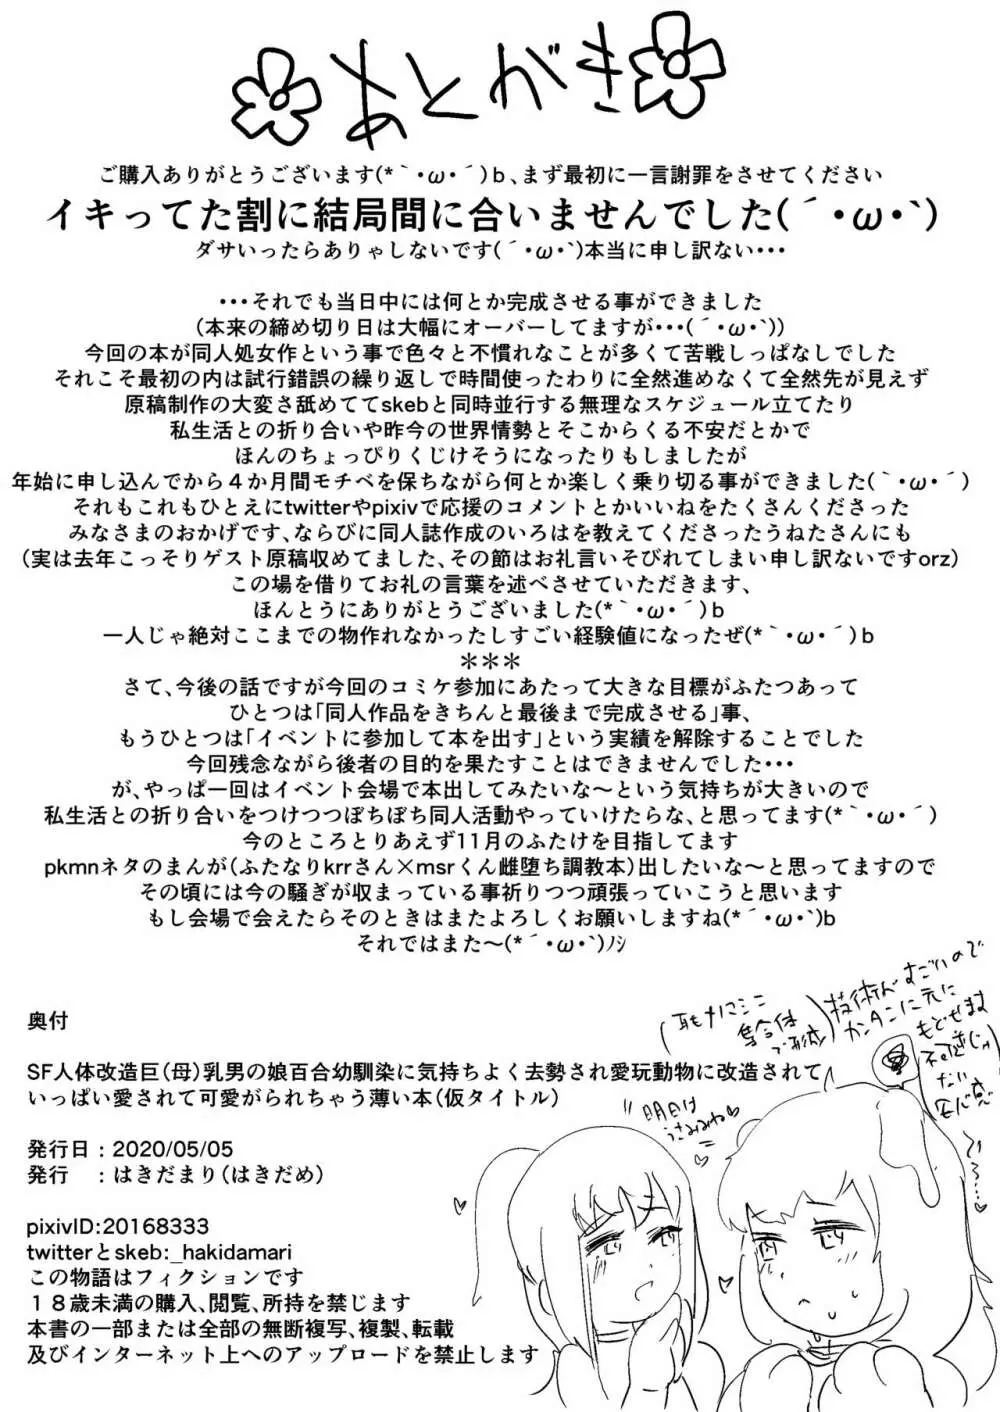 あとがき
ご購入ありがとうございます(*｀･ω･´)ｂ、まず最初に一言謝罪をさせてください
イキってた割に結局間に合いませんでした(´･ω･`)
ダサいったらありゃしないです(´･ω･`)本当に申し訳ない･･･
･･･それでも当日中には何とか完成させる事ができました
(本来の締め切り日は大幅にオーバーしてますが･･･(´･ω･`))
今回の本が同人処女作という事で色々と不慣れなことが多くて苦戦しっぱなしでした
それこそ最初の内は試行錯誤の繰り返しで時間使ったわりに全然進めなくて全然先が見えず
原稿制作の大変さ舐めててskebと同時並行する無理なスケジュール立てたり
私生活との折り合いや昨今の世界情勢とそこからくる不安だとかで
ほんのちょっぴりくじけそうになったりもしましたが
年始に申し込んでから４か月間モチベを保ちながら何とか楽しく乗り切る事ができました(｀･ω･´)
それもこれもひとえにtwitterやpixivで応援のコメントとかいいねをたくさんくださった
みなさまのおかげです、ならびに同人誌作成のいろはを教えてくださったうねたさんにも
(実は去年こっそりゲスト原稿収めてました、その節はお礼言いそびれてしまい申し訳ないですorz)
この場を借りてお礼の言葉を述べさせていただきます、
ほんとうにありがとうございました(*｀･ω･´)ｂ
一人じゃ絶対ここまでの物作れなかったしすごい経験値になったぜ(*｀･ω･´)ｂ
＊＊＊
さて、今後の話ですが今回のコミケ参加にあたって大きな目標がふたつあって
ひとつは「同人作品をきちんと最後まで完成させる」事、
もうひとつは「イベントに参加して本を出す」という実績を解除することでした
今回残念ながら後者の目的を果たすことはできませんでした･･･
が、やっぱ一回はイベント会場で本出してみたいな～という気持ちが大きいので
私生活との折り合いをつけつつぼちぼち同人活動やっていけたらな、と思ってます(*｀･ω･´)
今のところとりあえず11月のふたけを目指してます
pkmnネタのまんが(ふたなりkrrさん×msrくん雌堕ち調教本)出したいな～と思ってますので
その頃には今の騒ぎが収まっている事祈りつつ頑張っていこうと思います
もし会場で会えたらそのときはまたよろしくお願いしますね(*´･ω･`)b
それではまた～(*´･ω･`)ﾉｼ
奥付
SF人体改造巨(母)乳男の娘百合幼馴染に気持ちよく去勢され愛玩動物に改造されて
いっぱい愛されて可愛がられちゃう薄い本(仮タイトル)
発行日：2020/05/05
発行　：はきだまり(はきだめ)
pixivID:20168333
twitterとskeb:_hakidamari
この物語はフィクションです
１８歳未満の購入、閲覧、所持を禁じます
本書の一部または全部の無断複写、複製、転載
及びインターネット上へのアップロードを禁止します
技術がすごいので
カンタンに元に
もどせます
耳もナノマシン
集合体
で形成
明日は